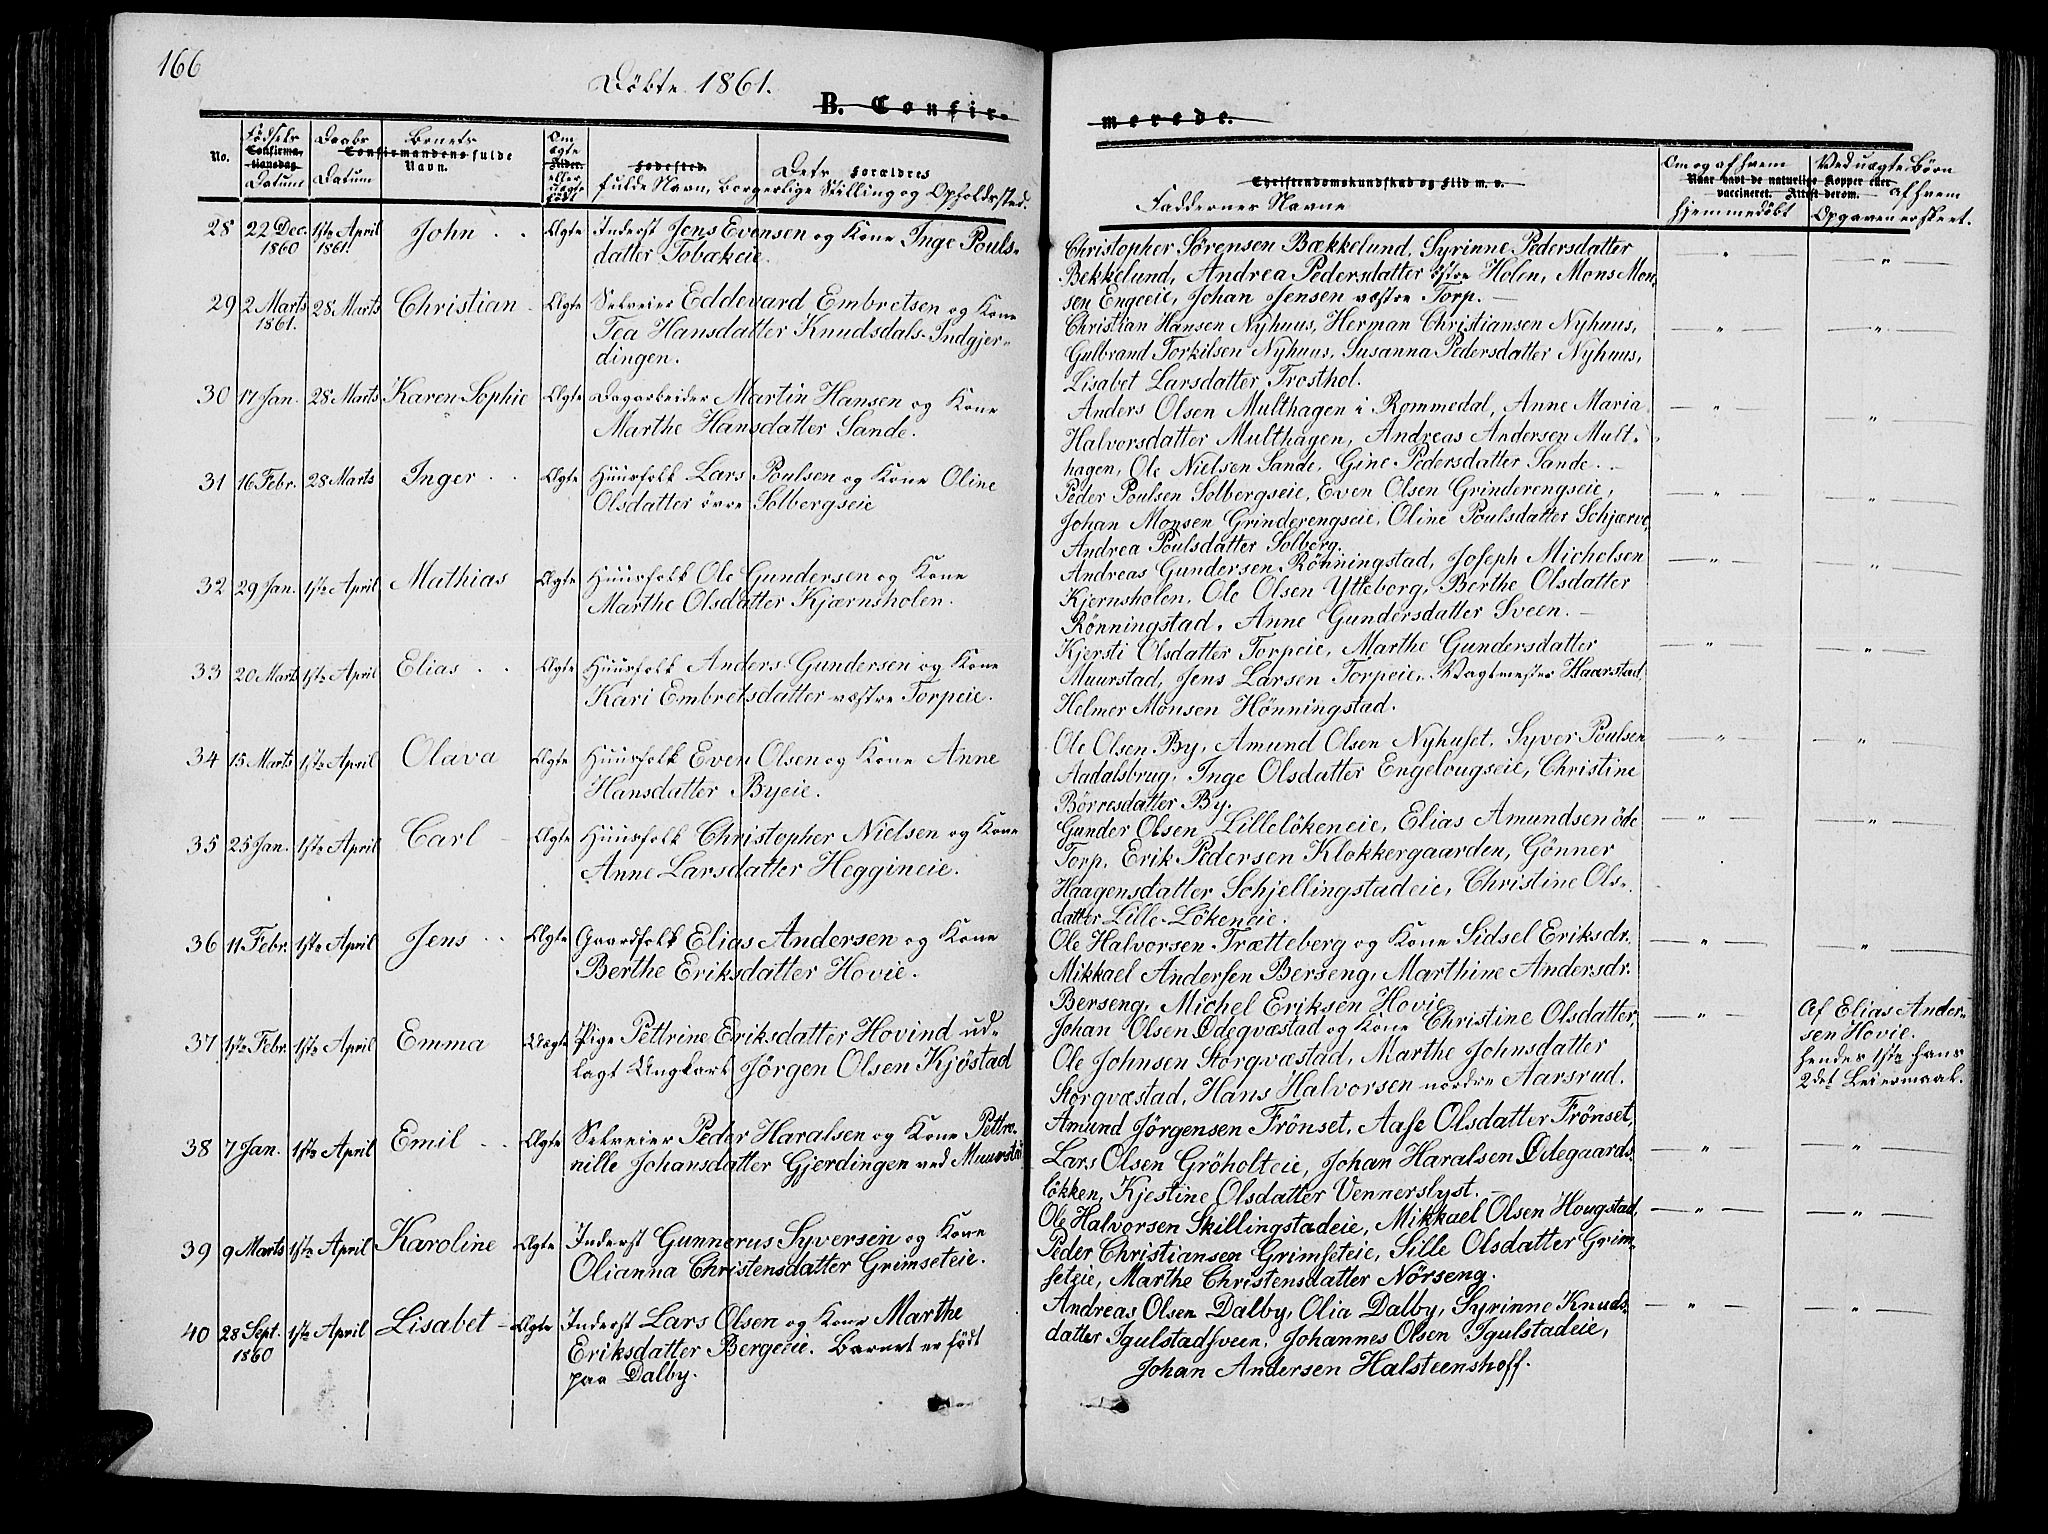 166
Döbte 1861.
B. Confir-
merede.
No.
Födsels
Confirma-
tionsdag
Datum
Daabs
Datum
Barnets
Confirmandens fulde
Navn.
Om
ægte
Alder.
eller
uægte
født
Födested
Dets Forældres
fulde Navn, borgerlige Stilling og Opholdssted.
Christendomskundskab og Flid m. v.
Faddernes Navne
Om og af hvem
Naar havt de naturlige Kopper eller
vaccineret. Attest derom.
hjemmedøbt
Ved uægte Børn
af hvem
Opgaven er skeet.
28 22 Dec. 1ste April John Ægte Inderst Jens Evensen og Kone Inge Pouls-
1860 1861. datter Tobakeie.
Christopher Sørensen Bækkelund, Syrinne Pedersdatter
Bekkelund, Andrea Pedersdatter östre Holen, Mons Mon-
sen Engeeie, Johan Jensen væstre Torp.
29 2 Marts 28 Marts Christian Ægte Selveier Eddevard Embretsen og Kone
1861. Tea Hansdatter Knudsdals-Indgjer-
dingen.
Christian Hansen Nyhuus, Herman Christiansen Nyhuus,
Gulbrand Torkilsen Nyhuus, Susanna Pedersdatter Nyhuus,
Lisabet Larsdatter Trosthol.
30 17 Jan. 28 Marts Karen Sophie Ægte Dagarbeider Martin Hansen og Kone
Marthe Hansdatter Sande.
Anders Olsen Multhagen i Rommedal, Anne Maria
Halvorsdatter Multhagen, Andreas Andersen Mult-
hagen, Ole Nielsen Sande, Gine Pedersdatter Sande.
31 16 Febr. 28 Marts Inger Ægte Huusfolk Lars Poulsen og Kone Oline
Olsdatter övre Solbergseie
Peder Poulsen Solbergseie, Even Olsen Grinderengseie,
Johan Monsen Grinderengseie, Oline Poulsdatter Schjærve,
Andrea Poulsdatter Solberg.
32 29 Jan. 1ste April Mathias Ægte Huusfolk Ole Gundersen og Kone
Marthe Olsdatter Kjærnsholen.
Andreas Gundersen Rönningstad, Joseph Michelsen
Kjernsholen, Ole Olsen Ytteborg, Berthe Olsdatter
Rönningstad, Anne Gundersdatter Sveen.
33 20 Marts 1ste April Elias Ægte Huusfolk Anders Gundersen og Kone
Kari Embretsdatter væstre Torpeie.
Kjersti Olsdatter Torpeie, Marthe Gundersdatter
Muurstad, Jens Larsen Torpeie, Vagtmester Haarstad
Helmer Monsen Hönningstad.
34 15 Marts 1ste April Olava Ægte Huusfolk Even Olsen og Kone Anne
Hansdatter Byeie.
Ole Olsen By, Amund Olsen Nyhuset, Syver Poulsen
Aadalsbrug, Inge Olsdatter Engelougseie, Christine
Börresdatter By.
35 25 Jan. 1ste April Carl Ægte Huusfolk Christopher Nielsen og Kone
Anne Larsdatter Heggineie.
Gunder Olsen Lillelökeneie, Elias Amundsen öde
Torp, Erik Pedersen Klokkergaarden, Gönner
Haagensdatter Schjellingstadeie, Christine Ols-
datter Lille-Lökeneie.
36 11 Febr. 1ste April Jens Ægte Gaardfolk Elias Andersen og Kone
Berthe Eriksdatter Hovie.
Ole Halvorsen Trætteberg og Kone Sidsel Eriksdr.
Mikkael Andersen Berseng, Marthine Andersdr.
Berseng, Michel Eriksen Hovie
37 1ste Febr. 1ste April Emma Uægte Pige Pettrine Eriksdatter Hovind ud-
lagt Ungkarl Jörgen Olsen Kjöstad
Johan Olsen Ödegvæstad og Kone Christine Olsdatter,
Ole Johnsen Storgvæstad, Marthe Johnsdatter
Storgvæstad, Hans Halvorsen nordre Aarsrud.
Af Elias Ander-
sen Hovie.
hendes 1ste hans
2det Leiermaal.
38 7 Jan. 1ste April Emil Ægte Selveier Peder Haralsen og Kone Pettro-
nille Johansdatter Gjerdingen ved Muurstö
Amund Jörgensen Frönset, Aase Olsdatter Frönset,
Lars Olsen Gröholteie, Johan Haralsen Ödegaards-
lökken, Kjestine Olsdatter Vennerslyst.
39 9 Marts 1ste April Karoline Ægte Inderst Gunnerus Syversen og Kone
Olianna Christensdatter Grimseteie.
Ole Halvorsen Skillingstadeie, Mikkael Olsen Hougstad,
Peder Christiansen Grimseteie, Sille Olsdatter Grim-
seteie, Marthe Christensdatter Nörseng.
40 28 Sept. 1ste April Lisabet Ægte Inderst Lars Olsen og Kone Marthe
1860 Eriksdatter Bergeeie. Barnet er födt
paa Dalby.
Andreas Olsen Dalby, Olia Dalby, Syrinne Knuds-
datter Igulstadsveen, Johannes Olsen Igulstadeie,
Johan Andersen Halsteenshoff.